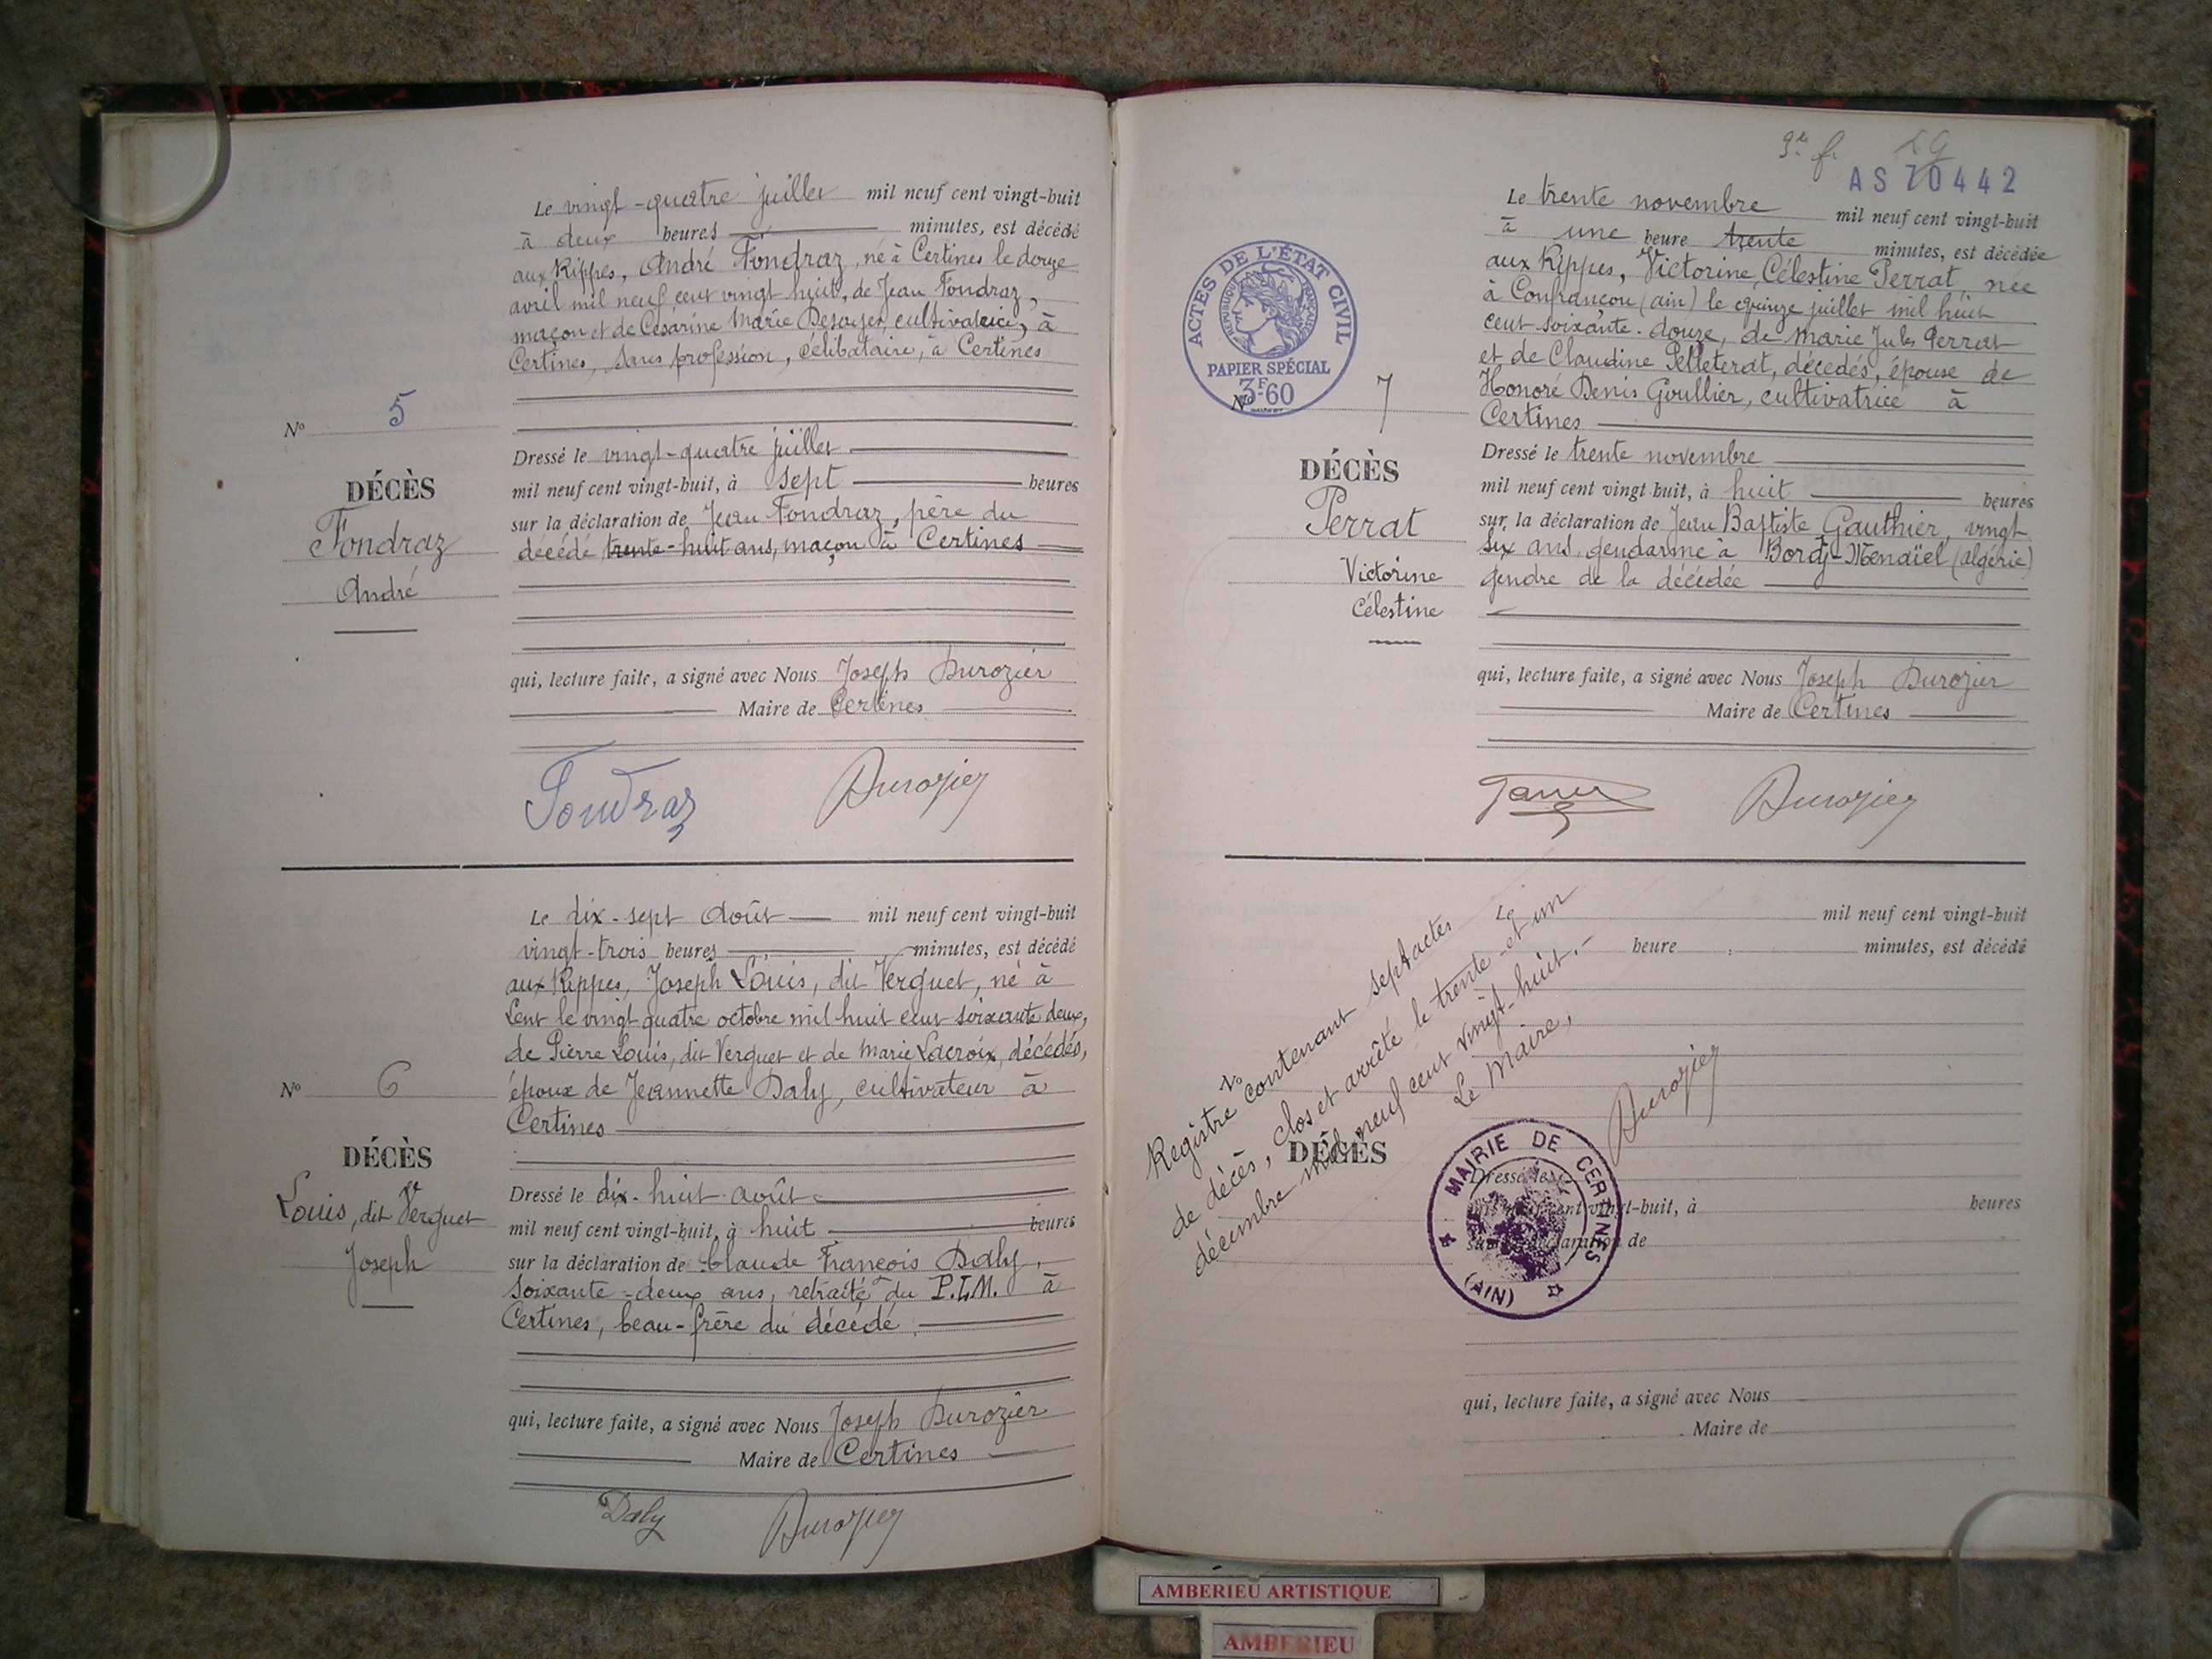 Le vingt-quatre juillet mil neuf cent vingt-huit
à deux heures minutes, est décédé
aux Rippes, André Fondraz, né à Certines le douze
avril mil neuf cent vingt huit, de Jean Fondraz,
maçon et de Césarine Marie Desayes, cultivatrice, à
Certines, sans profession, célibataire, à Certines
N° 5
DÉCÈS
Fondraz
André
Dressé le vingt-quatre juillet
mil neuf cent vingt-huit, à sept heures
sur la déclaration de Jean Fondraz, père du
décédé trente-huit ans, maçon à Certines
qui, lecture faite, a signé avec Nous Joseph Durozier
Maire de Certines
Fondraz Durozier
Le dix-sept août mil neuf cent vingt-huit
vingt-trois heures minutes, est décédé
aux Rippes, Joseph Louis, dit Verguet, né à
Lent le vingt quatre octobre mil huit cent soixante deux,
de Pierre Louis, dit Verguet et de Marie Lacroix, décédés,
époux de Jeannette Daly, cultivateur à
Certines
N° 6
DÉCÈS
Louis, dit Verguet
Joseph
Dressé le dix-huit août
mil neuf cent vingt-huit, à huit heures
sur la déclaration de Claude François Daly,
soixante-deux ans, retraité du P.L.M. à
Certines, beau-frère du décédé
qui, lecture faite, a signé avec Nous Joseph Durozier
Maire de Certines
Daly Durozier
AS 70442
ACTES DE L'ÉTAT CIVIL
RÉPUBLIQUE FRANÇAISE
PAPIER SPÉCIAL
3F60
Le trente novembre mil neuf cent vingt-huit
à une heure trente minutes, est décédée
aux Rippes, Victorine, Célestine Perrat, née
à Confrançon (ain) le quinze juillet mil huit
cent soixante-douze, de Marie Jules Perrat
et de Claudine Pelleterat, décédés, épouse de
Honoré Denis Goullier, cultivatrice à
Certines
N° 7
DÉCÈS
Perrat
Victorine
Célestine
Dressé le trente novembre
mil neuf cent vingt-huit, à huit heures
sur la déclaration de Jean Baptiste Gauthier, vingt
six ans, gendarme à Bordj-Menaïel (algérie)
gendre de la décédée
qui, lecture faite, a signé avec Nous Joseph Durozier
Maire de Certines
Durozier
Le mil neuf cent vingt-huit
heure minutes, est décédé
N°
DÉCÈS
Registre contenant sept actes
de décès, clos et arrêté le trente-et-un
décembre mil neuf cent vingt-huit.-
Le Maire,
Durozier
MAIRIE DE CERTINES
(AIN)
Dressé le
mil neuf cent vingt-huit, à heures
sur la déclaration de
qui, lecture faite, a signé avec Nous
Maire de
AMBERIEU ARTISTIQUE
AMBERIEU